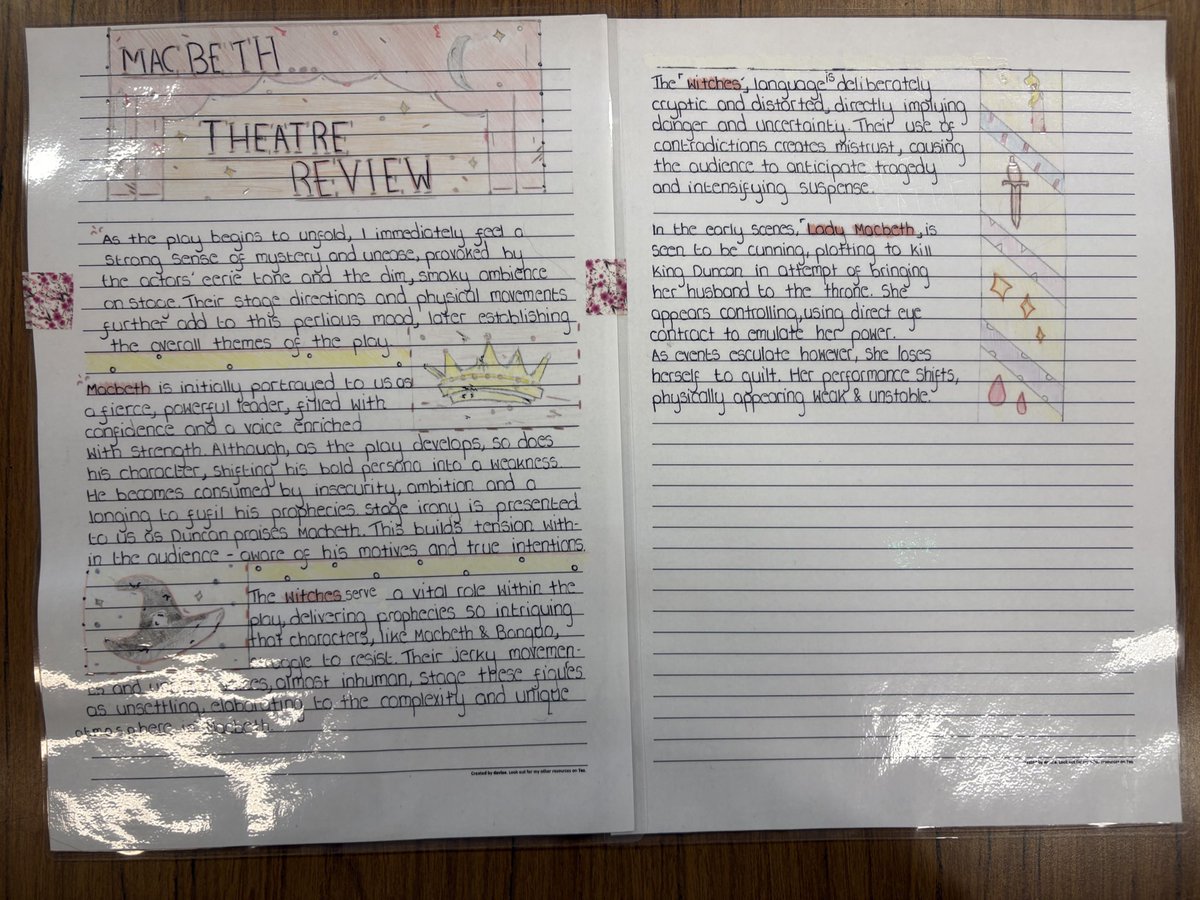 MACBETH...
THEATRE
REVIEW
As the play begins to unfold, I immediately feel a
strong sense of mystery and unease, provoked by
the actors' eerie tone and the dim, smoky ambience
on stage. Their stage directions and physical movements
further add to this perlious mood, later establishing
the overall themes of the play.
Macbeth is initially portrayed to us as
a fierce, powerful leader, filled with
confidence and a voice enriched
with strength. Although, as the play develops, so does
his character, shifting his bold persona into a weakness.
He becomes consumed by insecurity, ambition and a
longing to fulfil his prophecies stage irony is presented
to us as Duncan praises Macbeth. This builds tension with-
in the audience - aware of his motives and true intentions.
The witches serve a vital role within the
play, delivering prophecies so intriguing
that characters, like Macbeth & Banquo,
to resist. Their jerky movemen-
ts and almost inhuman, stage these figures
as unsettling, elaborating to the complexity and unique
atmosphere in Macbeth.
Created by davlou. Look out for my other resources on Tes.
The "witches", language is deliberately
cryptic and distorted, directly implying
danger and uncertainty. Their use of
contradictions creates mistrust, causing
the audience to anticipate tragedy
and intensifying suspense.
In the early scenes, "Lady Macbeth", is
seen to be cunning, plotting to kill
King Duncan in attempt of bringing
her husband to the throne. She
appears controlling, using direct eye
contract to emulate her power.
As events esculate however, she loses
herself to guilt. Her performance shifts,
physically appearing weak & unstable.